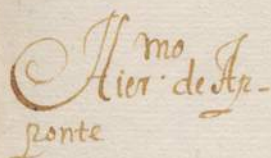 Hier.mo de Ap-
ponte